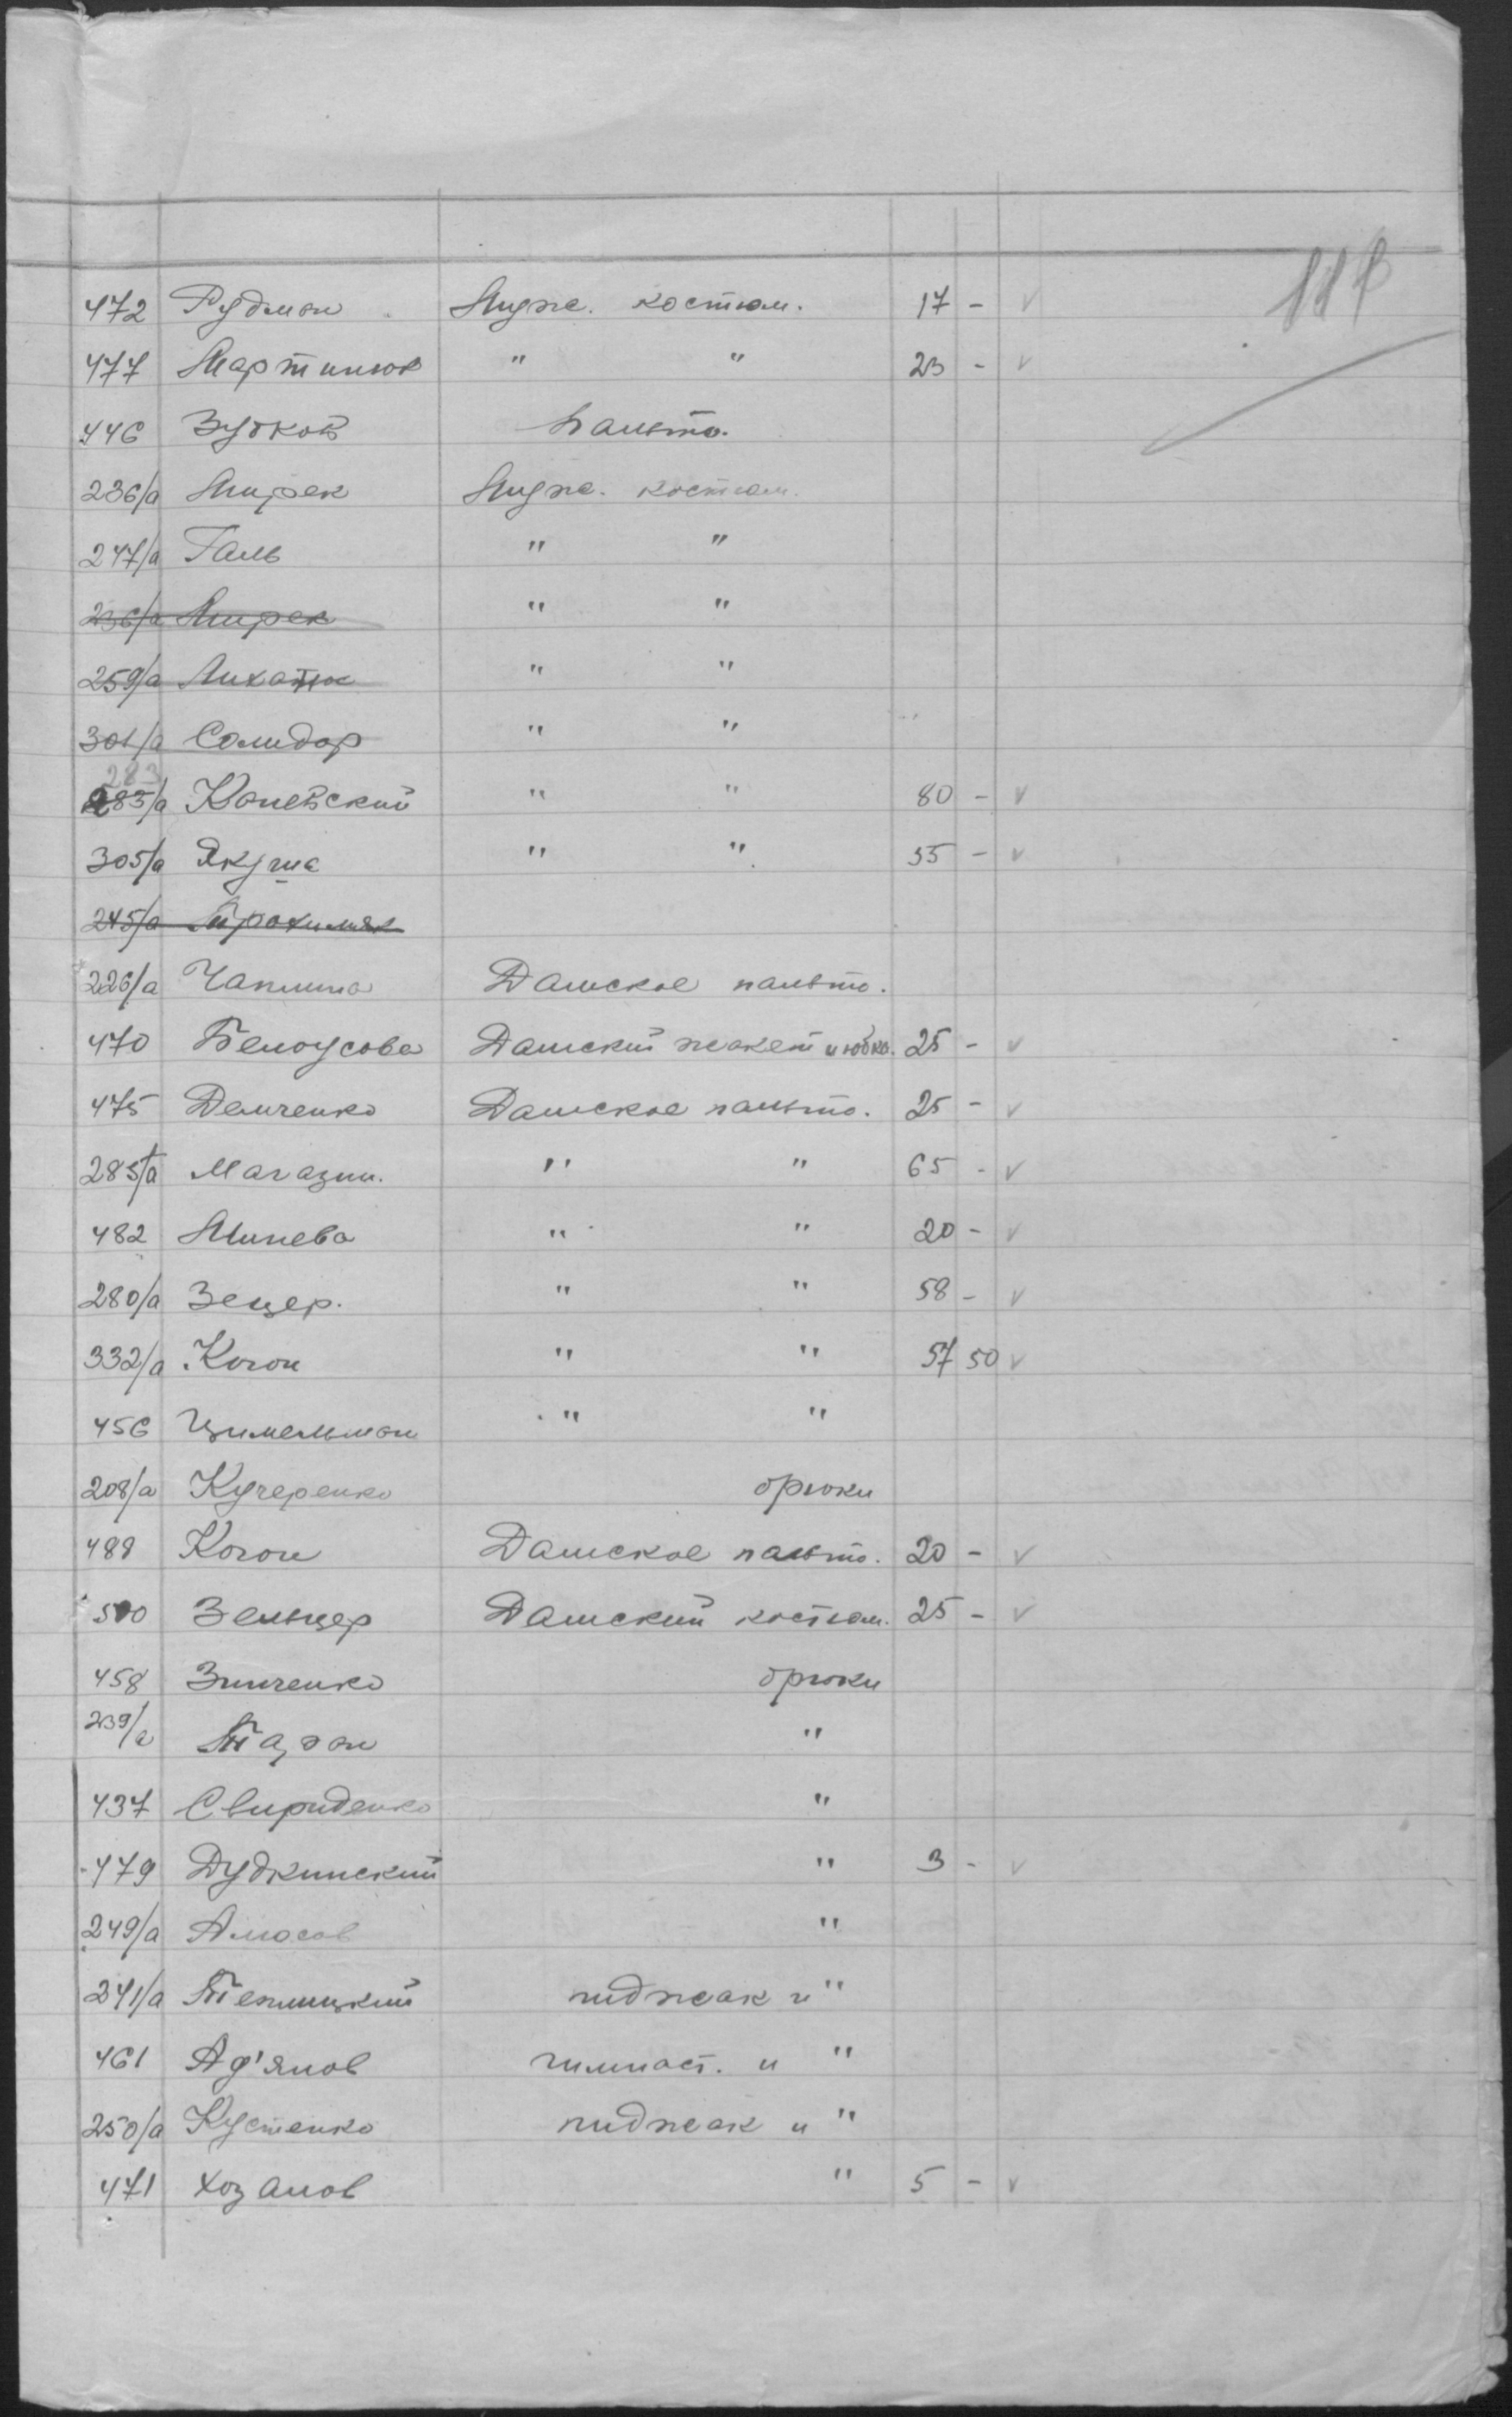 118
472 Рудман Мужс. костюм. 17 - v
477 Мартинюк " " 23 - v
446 Зубков Пальто.
236/а Мирек Мужс. костюм.
247/а Галь " "
236/а Мирек " "
259/а Лихатюк " "
301/а Солидор " "
283
283/а Каневский " " 80 - v
305/а Якуша " " 55 - v
245/а Трохимяк
226/а Чапкина Дамское пальто.
470 Белоусова Дамский жакет и юбка. 25 - v
475 Демченко Дамское пальто. 25 - v
285/а Магазин. " " 65 - v
482 Минева " " 20 - v
280/а Зецер. " " 58 - v
332/а Коган " " 57 50 v
456 Цимельман " "
208/а Кучеренко брюки
488 Коган Дамское пальто. 20 - v
500 Зельцер Дамский костюм. 25 - v
458 Зинченко брюки
239/а Таран "
437 Свириденко "
479 Дудкинский " 3 - v
249/а Амосов "
241/а Теплицкий пиджак и "
461 Ад'янов гимнаст. и "
250/а Кустенко пиджак и "
471 Хозанов " 5 - v